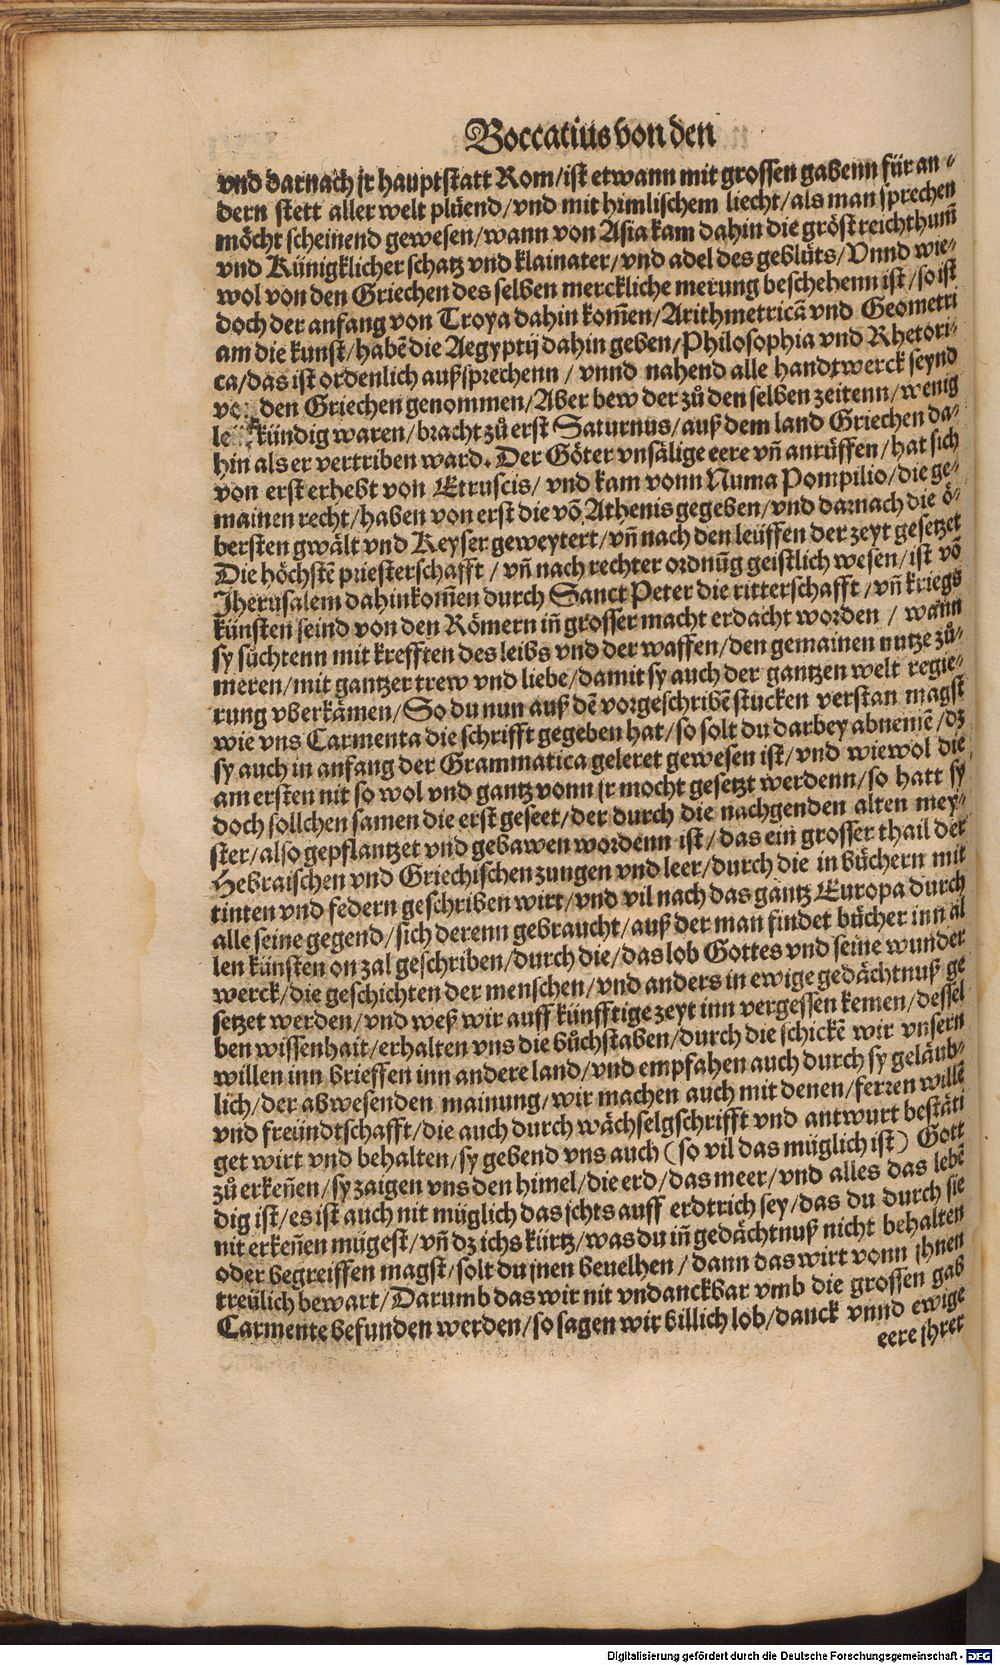 Boccatius von den
vnd darnach jr hauptstatt Rom/ist etwann mit grossen gabenn für an-
dern stett aller welt plüend/vnd mit himlischem liecht/als man sprechen
möcht scheinend gewesen/wann von Asia kam dahin die gröst reichthum̃
vnd Künigklicher schatz vnd klainater/vnd adel des geblüts/Vnnd wie-
wol von den Griechen des selben merckliche merung beschehenn ist/so ist
doch der anfang von Troya dahin kom̃en/Arithmetricã vnd Geometri
am die kunst/habẽ die Aegyptij dahin geben/Philosophia vnd Rhetori-
ca/das ist ordenlich außsprechenn/vnnd nahend alle handtwerck seynd
den Griechen genommen/Aber bew der zů den selben zeitenn/wenig
kündig waren/bracht zů erst Saturnus/auß dem land Griechen da-
hin als er vertriben ward. Der Göter vnsälige eere vñ anrüffen/hat sich
von erst erhebt von Etruscis/vnd kam vonn Numa Pompilio/die ge-
mainen recht/haben von erst die võ Athenis gegeben/vnd darnach die ö-
bersten gwält vnd Keyser geweytert/vñ nach den leüffen der zeyt gesetzet
Die höchstẽ priesterschafft/vñ nach rechter ordnũg geistlich wesen/ist võ
Jherusalem dahinkom̃en durch Sanct Peter die ritterschafft/vñ kriegs
künsten seind von den Römern iñ grosser macht erdacht worden/wann
sy sůchtenn mit krefften des leibs vnd der waffen/den gemainen nutze zů-
meren/mit gantzer trew vnd liebe/damit sy auch der gantzen welt regie-
rung vberkämen/So du nun auß dẽ vorgeschribẽ stucken verstan magst
wie vns Carmenta die schrifft gegeben hat/so solt du darbey abnemẽ/dz
sy auch in anfang der Grammatica geleret gewesen ist/vnd wiewol die
am ersten nit so wol vnd gantz vonn jr mocht gesetzt werdenn/so hatt sy
doch sollchen samen die erst geseet/der durch die nachgenden alten mey-
ster/also gepflantzet vnd gebawen wordenn ist/das ein grosser thail der
Hebraischen vnd Griechischen zungen vnd leer/durch die in büchern mit
tinten vnd federn geschriben wirt/vnd vil nach das gantz Europa durch
alle seine gegend/sich derenn gebraucht/auß der man findet bücher inn al
len künsten on zal geschriben/durch die/das lob Gottes vnd seine wunder
werck/die geschichten der menschen/vnd anders in ewige gedächtnuß ge
setzet werden/vnd weß wir auff künfftige zeyt inn vergessen kemen/dessel
ben wissenhait/erhalten vns die bůchstaben/durch die schickẽ wir vnsern
willen inn brieffen inn andere land/vnd empfahen auch durch sy geläub-
lich/der abwesenden mainung/wir machen auch mit denen/ferren willẽ
vnd freündtschafft/die auch durch wächselgschrifft vnd antwurt bestäti
get wirt vnd behalten/sy gebend vns auch (so vil das müglich ist) Gott
zů erkeñen/sy zaigen vns den himel/die erd/das meer/vnd alles das lebẽ
dig ist/es ist auch nit müglich das ichts auff erdtrich sey/das du durch sie
nit erkeñen mügest/vñ dz ichs kürtz/was du iñ gedächtnuß nicht behalten
oder begreiffen magst/solt du jnen beuelhen/dann das wirt vonn jhnen
treülich bewart/Darumb das wir nit vndanckbar vmb die grossen gab
Carmente befunden werden/so sagen wir billich lob/danck vnnd ewige
eere jhrer
Digitalisierung gefördert durch die Deutsche Forschungsgemeinschaft - DFG